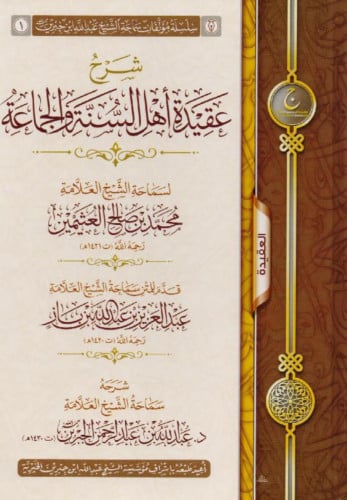 سلسلة مؤلفات سماحة الشيخ عبد الله ابن جبرين
١
شرح
عقيدة أهل السنة والجماعة
لسماحة الشيخ العلامة
محمد بن صالح العثيمين
رحمه الله (ت ١٤٢١هـ)
قدم للمتن سماحة الشيخ العلامة
عبد العزيز بن عبد الله بن باز
رحمه الله (ت ١٤٢٠هـ)
شرحه
سماحة الشيخ العلامة
د. عبد الله بن عبد الرحمن الجبرين (ت ١٤٣٠هـ)
أعيد طبعه بإشراف مؤسسة الشيخ عبد الله ابن جبرين الخيرية
العقيدة